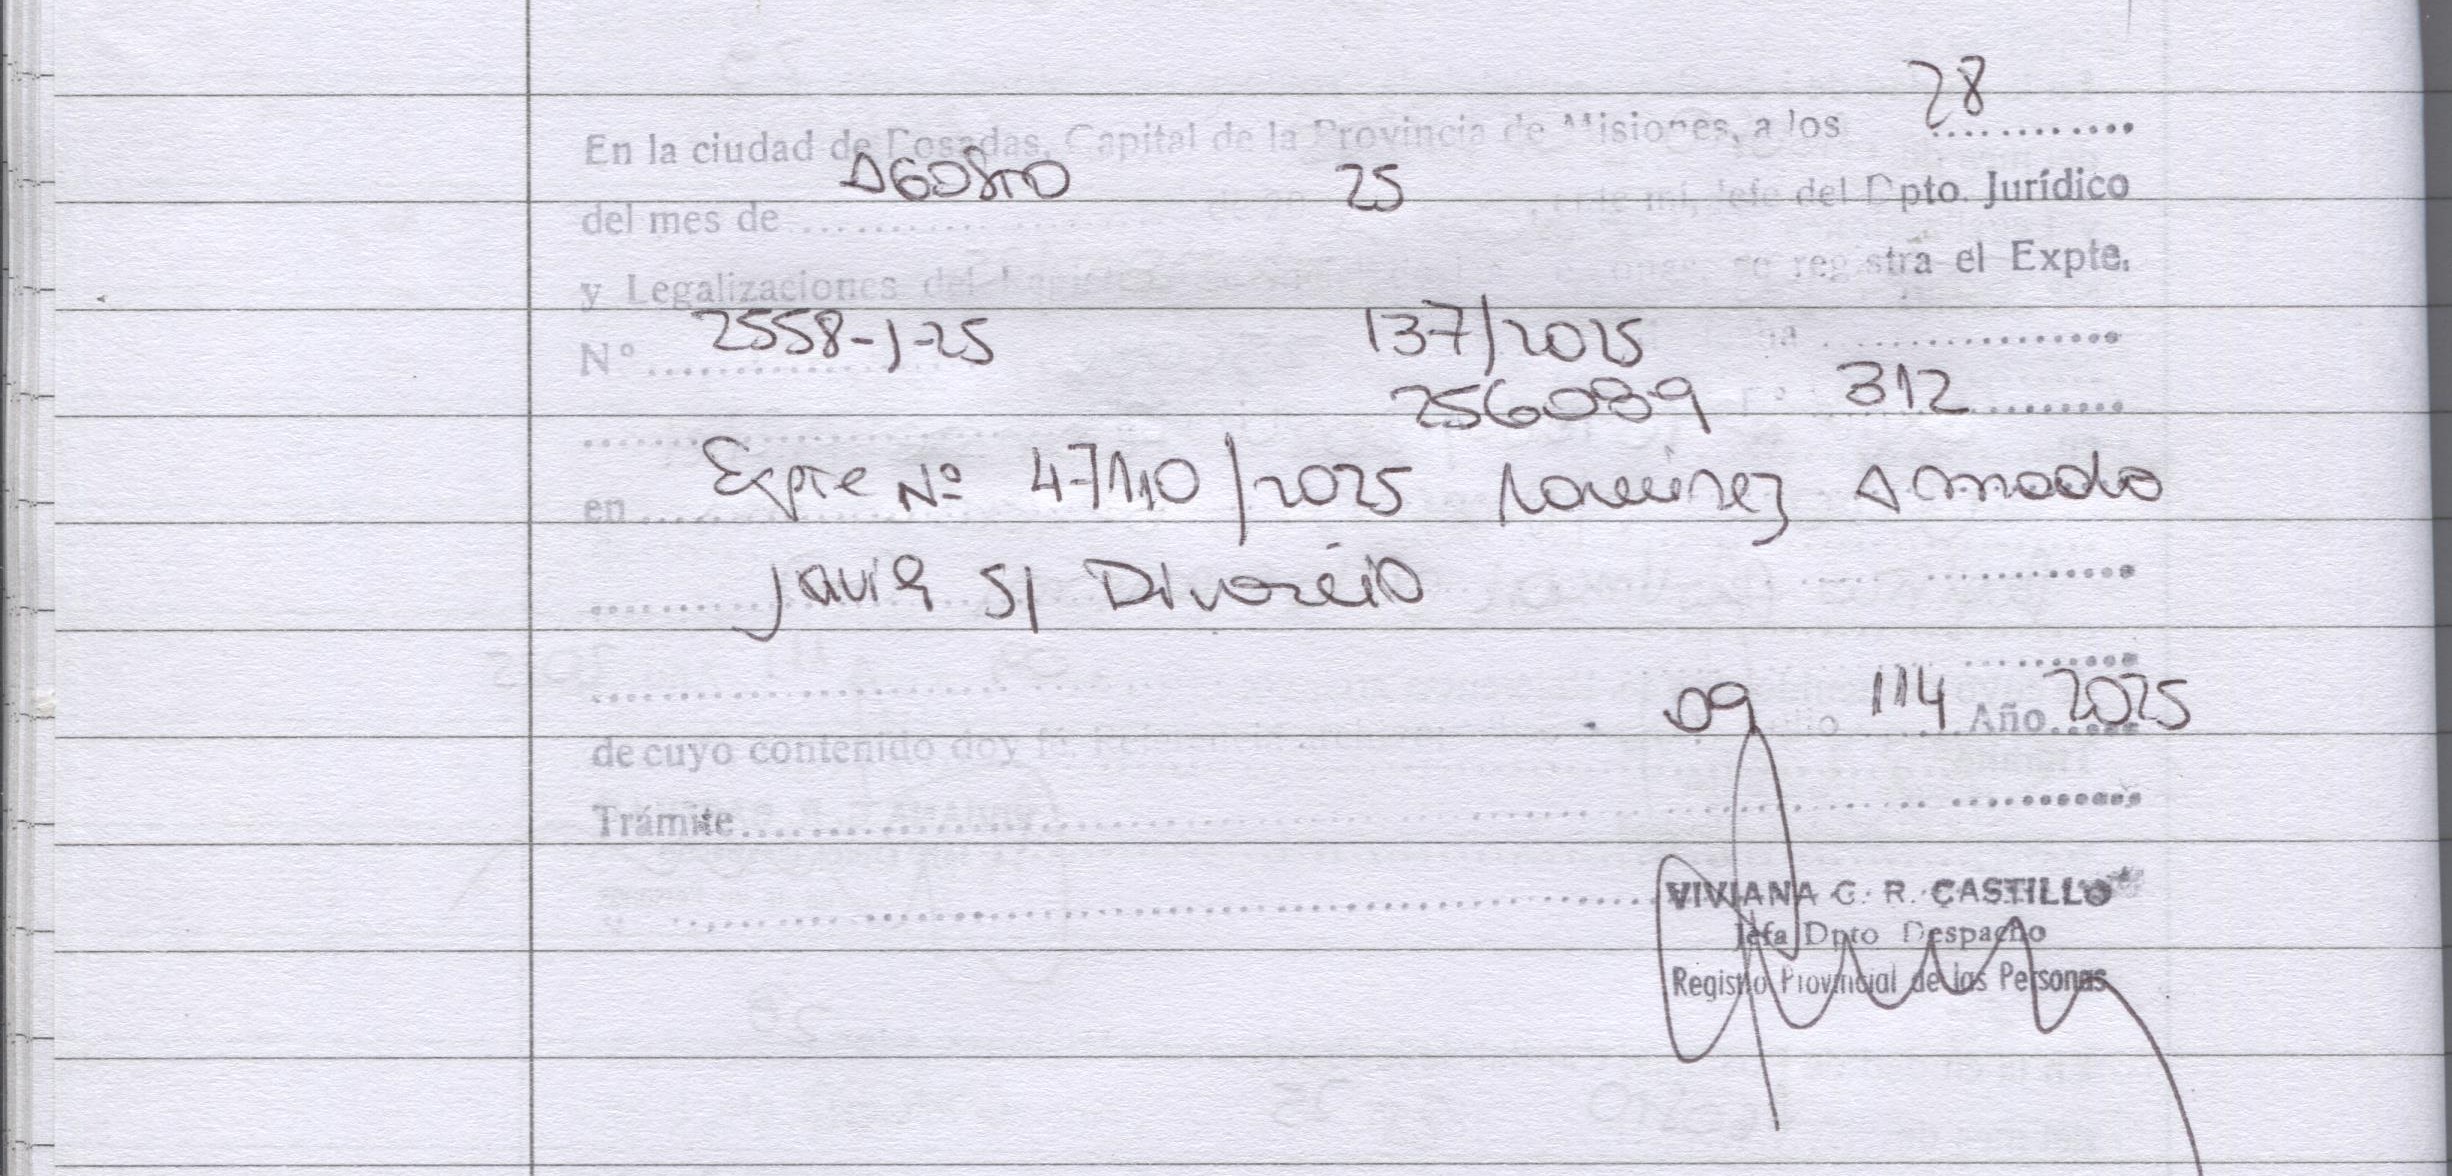 28
En la ciudad de Posadas, Capital de la Provincia de Misiones, a los ............
AGOSTO 25
del mes de .............. mí, Jefe del Dpto. Jurídico
y Legalizaciones del se registra el Expte.
2558-J-25 137/2025
Nº ..............
256089 312
Expte Nº 47110/2025 Ramirez Armado
en
Javier S/ Divorcio
09 114 2025
de cuyo contenido doy fé. Referencia Año.....
Trámite
VIVIANA C. R. CASTILLO
Jefa Dpto Despacho
Registro Provincial de las Personas